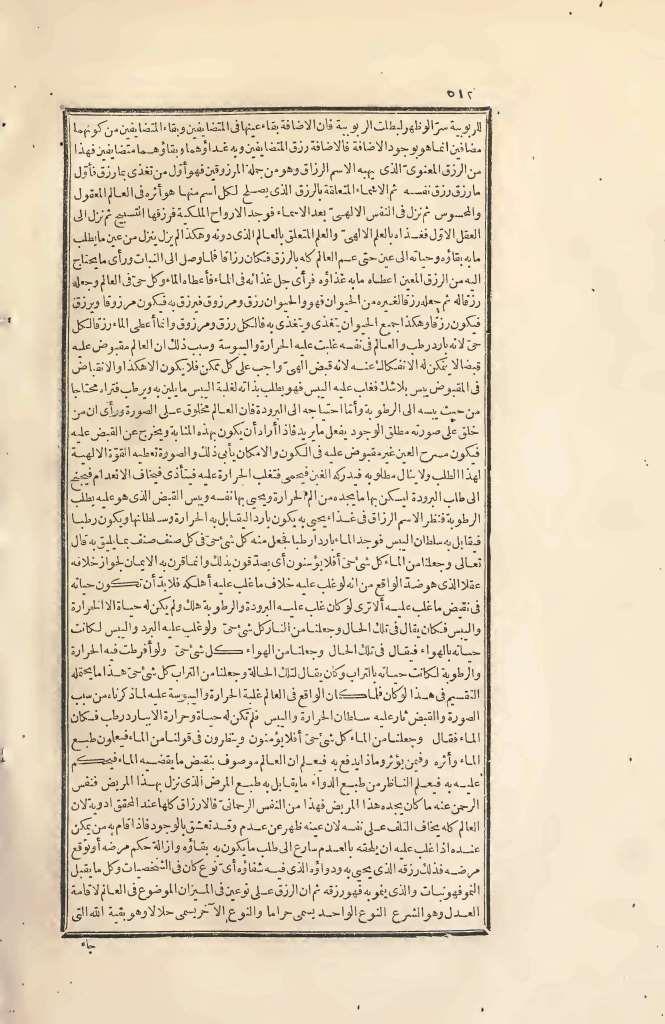 ٥١٢
للربوبية سرّ الوظهر لبطلت الربوبية فان الاضافة بقاء عينها فى المتضايفين وبقاء المتضايفين من كونهما
مضافين انما هو بوجود الاضافة فالاضافة رزق المتضايفين وبه غذاؤهما وبقاؤهما متضايفين فهذا
من الرزق المعنوىّ الذى يهبه الاسم الرزاق وهو من جملة المرزوقين فهو أوّل من تغذى بما رزق فأوّل
ما رزق رزق نفسه ثم الاسماء المتعلقة بالرزق الذى يصلح لكل اسم منها هو أثره فى العالم المعقول
والمحسوس ثم نزل فى النفس الالهىّ بعد الاسماء فوجد الارواح الملكية فرزقها التسبيح ثم نزل الى
العقل الاوّل فغذاه بالعلم الالهىّ والعلم المتعلق بالعالم الذى دونه وهكذا لم يزل ينزل من عين ما يطلب
ما به بقاؤه وحياته الى عين حتى عم العالم كله بالرزق فكان رزاقا فلما وصل الى النبات ورأى ما يحتاج
اليه من الرزق المعين أعطاه ما به غذاؤه فرأى جل غذائه فى الماء فأعطاه الماء وكل حىّ فى العالم وجعله
رزقا له ثم جعله رزقا لغيره من الحيوان فهو والحيوان رزق ومرزوق فيرزق به فيكون مرزوقا ويرزق
فيكون رزقا وهكذا جميع الحيوان يتغذى ويتغذى به فالكل رزق ومرزوق وانما أعطى الماء رزقا لكل
حىّ لانه بارد رطب والعالم فى نفسه غلبت عليه الحرارة واليبوسة وسبب ذلك ان العالم مقبوض عليه
قبضا لا يتمكن له الانفكاك عنه لانه قبض الهىّ واجب على كل ممكن فلا يكون الا هكذا والانقباض
فى المقبوض يبس بلا شك فغلب عليه اليبس فهو يطلب بذاته لغلبة اليبس ما يلين به ويرطب فتراه محتاجا
من حيث يبسه الى الرطوبة وأمّا احتياجه الى البرودة فان العالم مخلوق على الصورة ورأى ان من
خلق على صورته مطلق الوجود يفعل ما يريد فاذا أراد أن يكون بهذه المثابة ويخرج عن القبض عليه
فيكون مسرح العين غير مقبوض عليه فى الكون والامكان يأبى ذلك والصورة تعطيه القوّة الالهية
لهذا الطلب ولا ينال مطلوبه فيدركه الغبن فيحمى فتغلب الحرارة عليه فيتأذى فيخاف الانعدام فيجنح
الى طلب البرودة ليسكن بها ما يجده من الم الحرارة ويحيى بها نفسه ويبس القبض الذى هو عليه يطلب
الرطوبة فنظر الاسم الرزاق فى غذاء يحيى به يكون باردا ليقابل به الحرارة وسلطانها ويكون رطبا
فيقابل به سلطان اليبس فوجد الماء باردا رطبا فجعل منه كل شئ حىّ فى كل صنف صنف بما يليق به قال
تعالى وجعلنا من الماء كل شئ حىّ أفلا يؤمنون أى يصدّقون بذلك وانما قرن به الايمان لجواز خلافه
عقلا الذى هو ضدّ الواقع من انه لو غلب عليه خلاف ما غلب عليه أهلكه فلا بدّ أن تكون حياته
فى نقيض ما غلب عليه ألا ترى لو كان غلب عليه البرودة والرطوبة هلك ولم يكن له حياة الا الحرارة
واليبس فكان يقال فى تلك الحال وجعلنا من النار كل شئ حىّ ولو غلب عليه البرد واليبس لكانت
حياته بالهواء فيقال فى تلك الحال وجعلنا من الهواء كل شئ حىّ ولو أفرطت فيه الحرارة
والرطوبة لكانت حياته بالتراب وكان يقال لتلك الحالة وجعلنا من التراب كل شئ حىّ هذا ما يحتمله
التقسيم فى هذا لو كان فلما كان الواقع فى العالم غلبة الحرارة واليبوسة عليه لما ذكرناه من سبب
الصورة والقبض ثار عليه سلطان الحرارة واليبس فلم تكن له حياة وحرارة الا ببارد رطب فكان
الماء فقال وجعلنا من الماء كل شئ حىّ أفلا يؤمنون وينظرون فى قولنا من الماء فيعلون طبع
الماء وأثره وفيمن يؤثر وماذا يدفع به فيعلم ان العالم موصوف بنقيض ما يقتضيه الماء فيحكم
عليه به فيعلم الناظر من طبع الدواء ما يقابل به طبع المرض الذى نزل بهذا المريض فنفس
الرحمن عنه ما كان يجده هذا المريض فهذا من النفس الرحمانىّ فالارزاق كلها عند المحقق ادوية لان
العالم كله يخاف التلف على نفسه لان عينه ظهر عن عدم وقد تعشق بالوجود فاذا قام به من يمكن
عنده اذا غلب عليه ان يلحقه بالعدم سارع الى طلب ما يكون به بقاؤه وازالة حكم مرضه أو توقع
مرضه فذلك رزقه الذى يحيى به ودواؤه الذى فيه شفاؤه أى نوع كان فى الشخصيات وكل ما يقبل
النموّ فهو نبات والذى ينمو به فهو رزقه ثم ان الرزق على نوعين فى الميزان الموضوع فى العالم لاقامة
العدل وهو الشرع النوع الواحد يسمى حراما والنوع الآخر يسمى حلالا وهو بقية الله التى
جاء